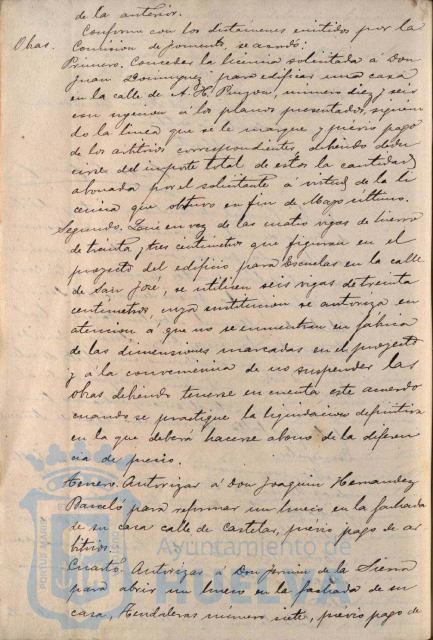 de la anterior.
Conforme con los dictámenes emitidos por la
Obras. Comisión de fomento, se acordó:
Primero. Conceder la licencia solicitada á Don
Juan Dominguez para edificar una casa
en la calle de A. H. Pinzón, número diez y seis
con sujeción á los planos presentados, siguien
do la línea que se le marque y prévio pago
de los arbitrios correspondientes, debiendo dedu
cirse del importe total de estos la cantidad
abonada por el solicitante á virtud de la li
cencia que obtuvo en fin de Mayo último.
Segundo. Que en vez de las cuatro vigas de hierro
de treinta y tres centímetros que figuran en el
proyecto del edificio para Escuelas en la calle
de San José, se utilicen seis vigas de treinta
centímetros, cuya sustitución se autoriza en
atención á que no se encuentran en fábrica
de las dimensiones marcadas en el proyecto
y á la conveniencia de no suspender las
obras debiendo tenerse en cuenta este acuerdo
cuando se practique la liquidación definitiva
en la que deberá hacerse abono de la diferen
cia de precio.
Tercero. Autorizar á Don Joaquin Hernandez
Barceló para reformar un hueco en la fachada
de su casa calle de Castelar, prévio pago de ar
bitrios.
Cuarto. Autorizar á Don Fermin de la Sierra
para abrir un hueco en la fachada de su
casa, Tendaleras número siete, prévio pago de
Ayuntamiento de
HUELVA